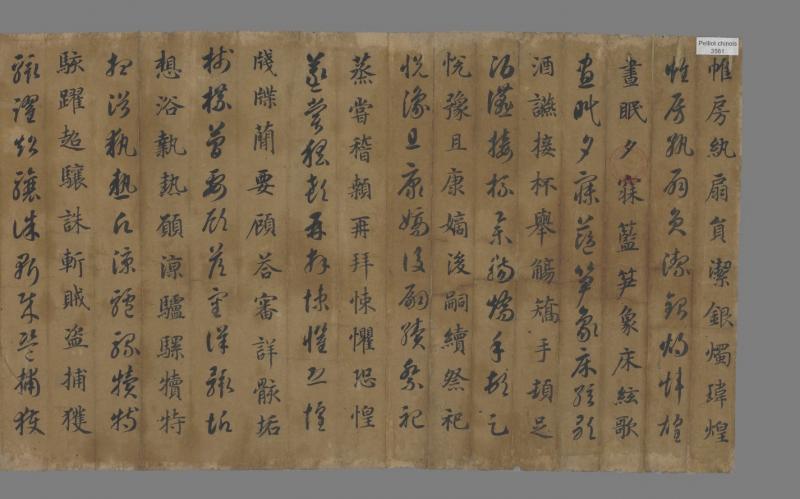 Pelliot chinois
3561
帷房紈扇員潔銀燭瑋煌
帷房紈扇員潔銀燭煒煌
晝眠夕寐藍笋象床絃歌
晝眠夕寐藍笋象床絃歌
酒讌接杯舉觴矯手頓足
酒讌接杯舉觴矯手頓足
悅豫且康嫡後嗣續祭祀
悅豫且康嫡後嗣續祭祀
蒸嘗稽顙再拜悚懼恐惶
蒸嘗稽顙再拜悚懼恐惶
牋牒蕳要顧荅審詳骸垢
牋牒蕳要顧荅審詳骸垢
想浴執熱願涼驢騾犢特
想浴執熱願涼驢騾犢特
駭躍超驤誅斬賊盜捕獲
駭躍超驤誅斬賊盜捕獲